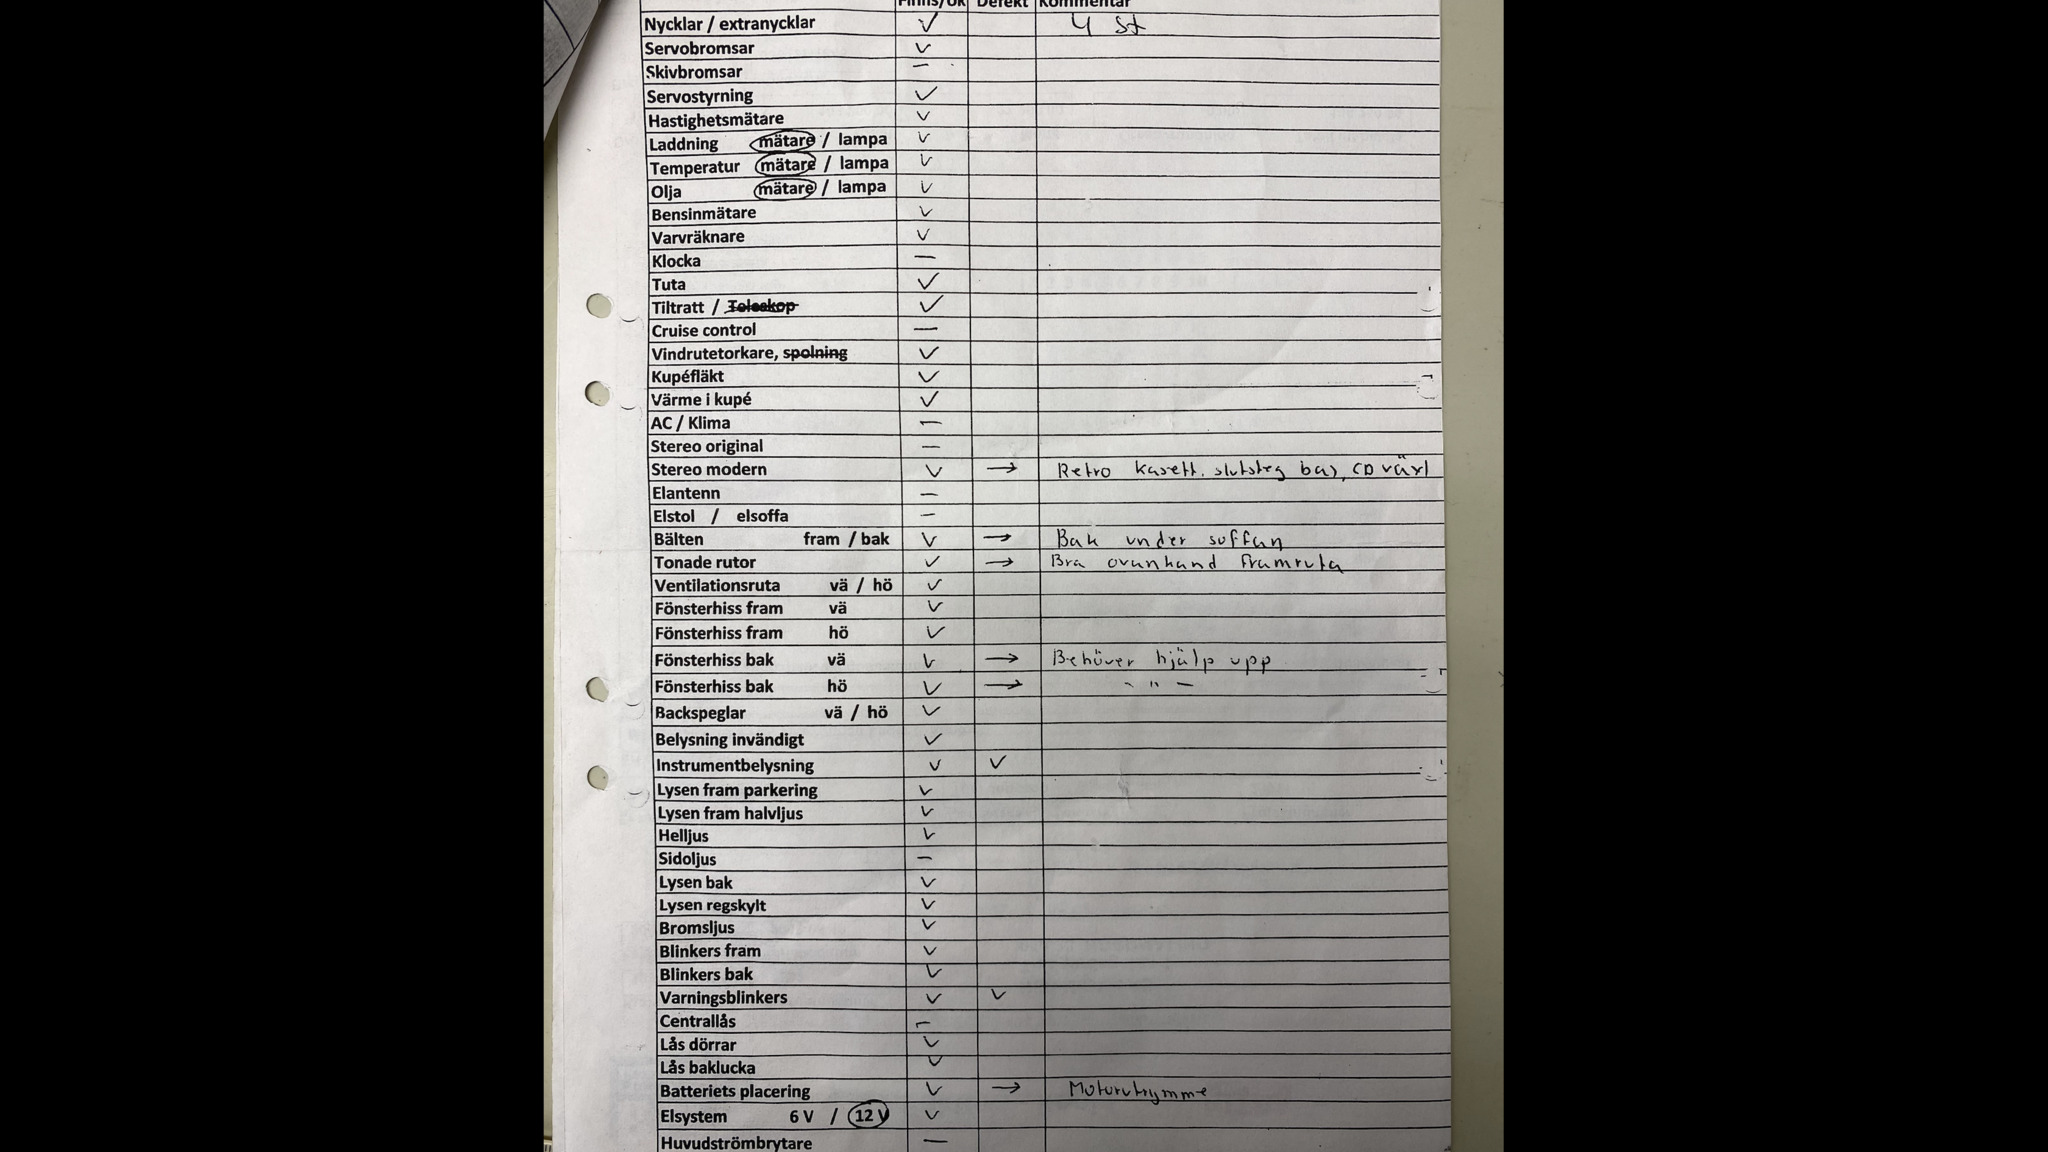 Finns/ok Defekt Kommentar
Nycklar / extranycklar ✓ 4 st
Servobromsar ✓
Skivbromsar —
Servostyrning ✓
Hastighetsmätare ✓
Laddning mätare / lampa ✓
Temperatur mätare / lampa ✓
Olja mätare / lampa ✓
Bensinmätare ✓
Varvräknare ✓
Klocka —
Tuta ✓
Tiltratt / Teleskop ✓
Cruise control —
Vindrutetorkare, spolning ✓
Kupéfläkt ✓
Värme i kupé ✓
AC / Klima —
Stereo original —
Stereo modern ✓ → Retro kasett. slutsteg bas, CD växl
Elantenn —
Elstol / elsoffa —
Bälten fram / bak ✓ → Bak under soffan
Tonade rutor ✓ → Bra ovankand framruta
Ventilationsruta vä / hö ✓
Fönsterhiss fram vä ✓
Fönsterhiss fram hö ✓
Fönsterhiss bak vä ✓ → Behöver hjälp upp
Fönsterhiss bak hö ✓ → - " -
Backspeglar vä / hö ✓
Belysning invändigt ✓
Instrumentbelysning ✓ ✓
Lysen fram parkering ✓
Lysen fram halvljus ✓
Helljus ✓
Sidoljus —
Lysen bak ✓
Lysen regskylt ✓
Bromsljus ✓
Blinkers fram ✓
Blinkers bak ✓
Varningsblinkers ✓ ✓
Centrallås —
Lås dörrar ✓
Lås baklucka ✓
Batteriets placering ✓ → Motorutrymme
Elsystem 6 V / 12 V ✓
Huvudströmbrytare —